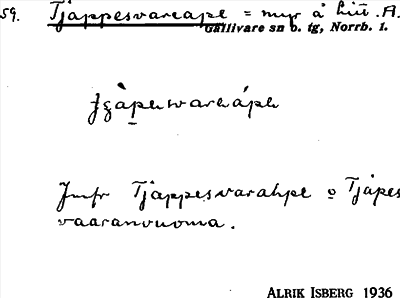 59. Tjåppesvareape = myr å lit. A.
Gällivare sn o. tg, Norrb. l.
Jmfr Tjåppesvarahpe o Tjåpes
vaaranvuoma.
ALRIK ISBERG 1936